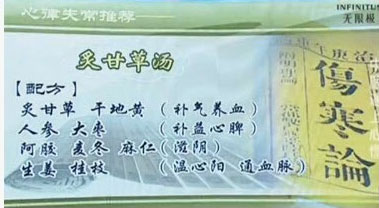 心律失常推荐
INFINITUS
无限极
炙甘草汤
【配方】
炙甘草 干地黄 （补气养血）
人参 大枣 （补益心脾）
阿胶 麦冬 麻仁（滋阴）
生姜 桂枝 （温心阳 通血脉）
傷寒論